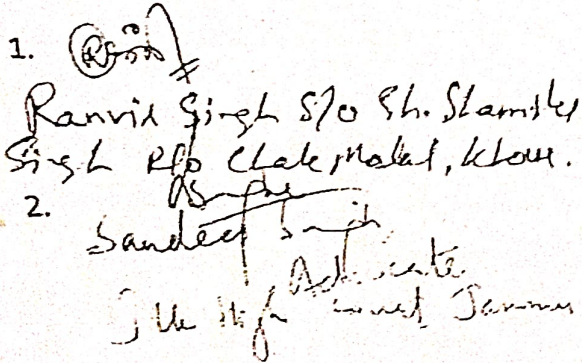 1.
Ranvir Singh S/o Sh. Shamsher
Singh R/o Chak Malal, Khour.
2.
Sandeep Singh
Advocate
J&K High Court, Jammu